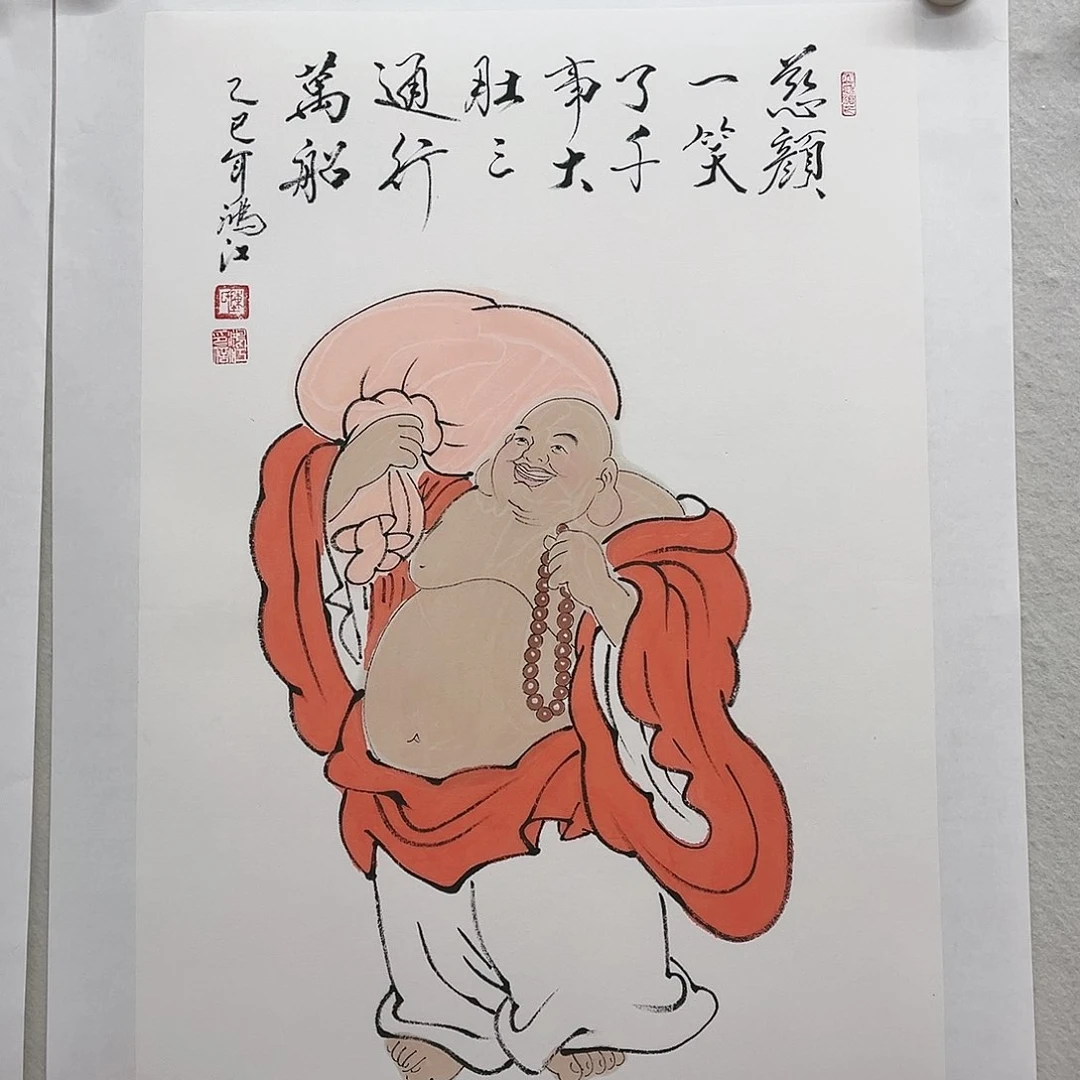 慈顔
一笑
了千
事大
肚三
通行
萬船
乙巳年鴻江